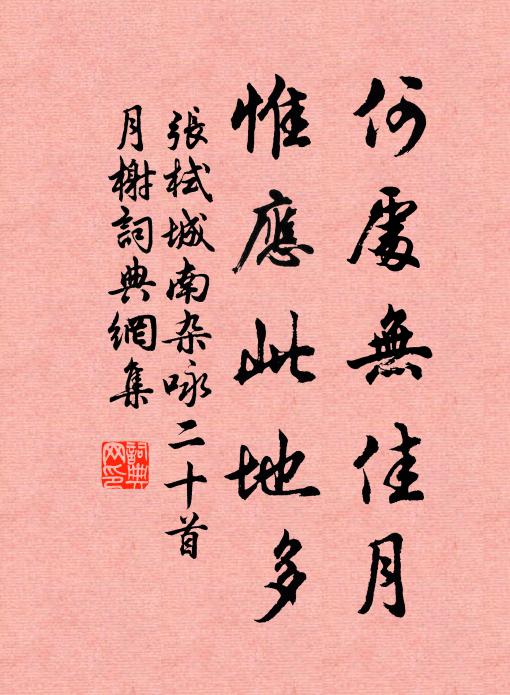 何處無佳月
惟應此地多
張栻城南杂咏二十首
月榭詞典網集
詞典網印